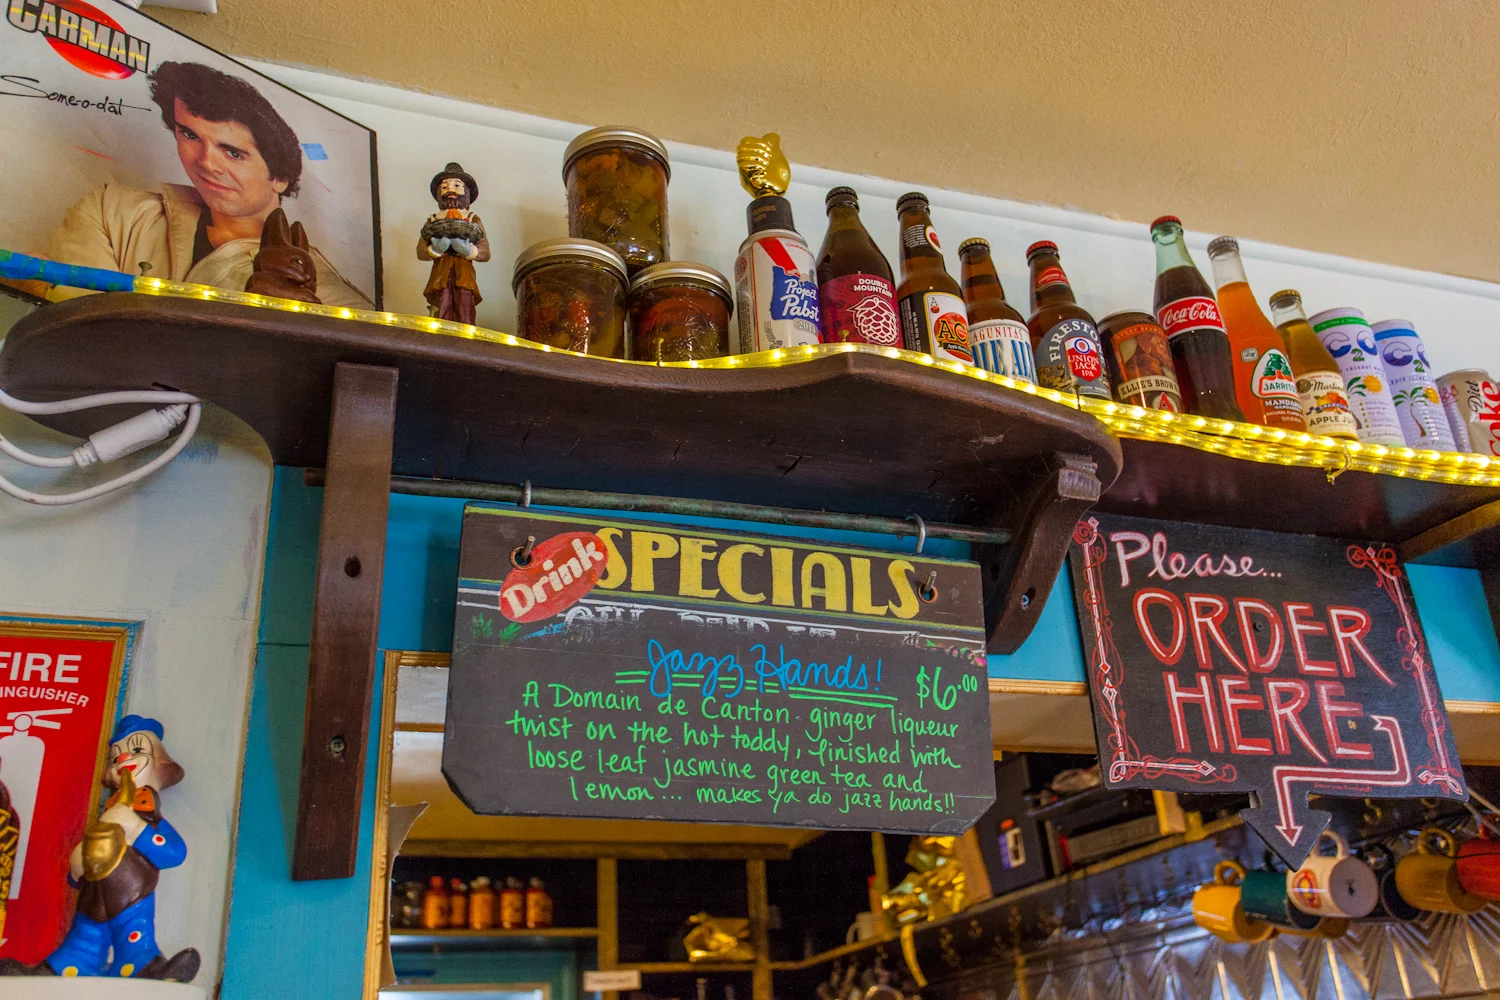 CARMAN
Some-o-dat
Project
Pabst
DOUBLE
MOUNTAIN
AG
LAGUNITAS
FIRESTO
UNION
JACK
IPA
ELLIE'S BROWN
Coca-Cola
JARRITOS
MANDARIN
Martinelli's
APPLE JUICE
C2O
C2O
Diet
Coke
Drink SPECIALS
Jazz Hands! $6.00
A Domain de Canton ginger liqueur
twist on the hot toddy, finished with
loose leaf jasmine green tea and
lemon... makes ya do jazz hands!!
Please...
ORDER
HERE
FIRE
INGUISHER